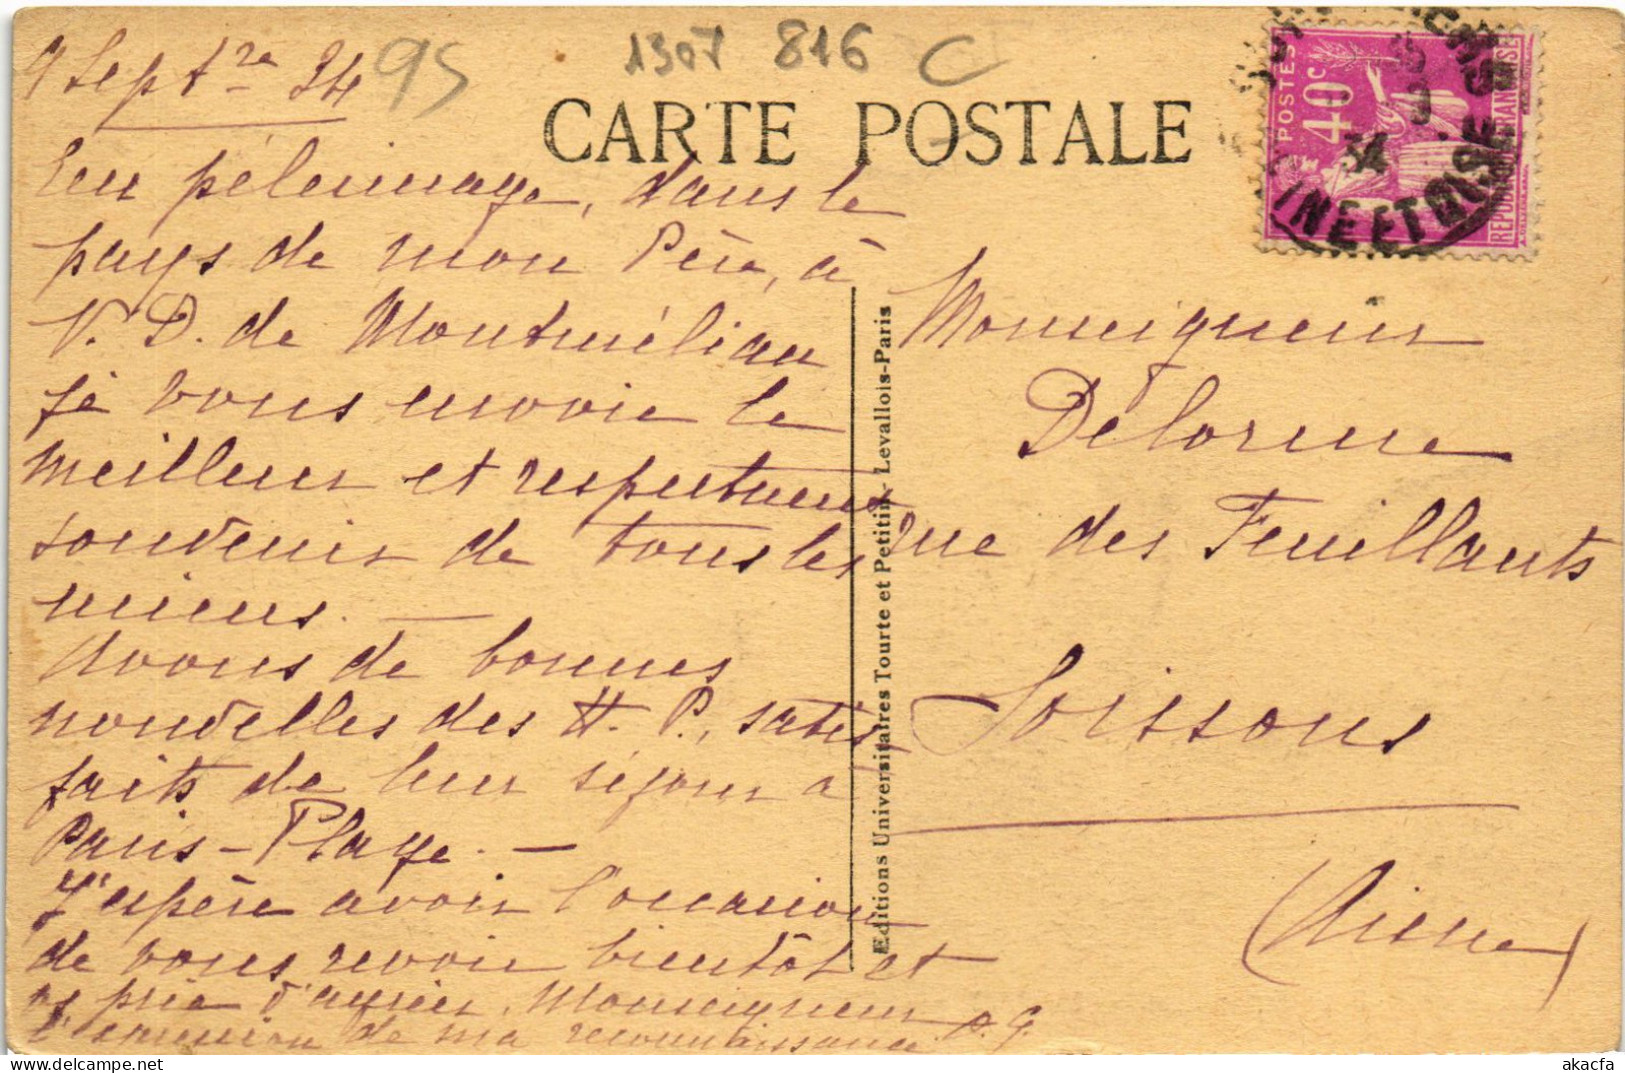 1307 816 C
95
CARTE POSTALE
POSTES
40c
REPUBLIQUE FRANÇAISE
34
INE ET OISE
9 Septre 34
En pélerinage, dans le
pays de mon Père, à
N. D. de Montmélian
je vous envoie le
meilleur et respectueux
souvenir de tous les
miens. —
Avons de bonnes
nouvelles des H. P., satis
faits de leur séjour à
Paris-Plage. —
J'espère avoir l'occasion
de vous revoir bientôt et
vs prie d'agréer, Monseigneur
l'expression de ma reconnaissance
P. G.
Editions Universitaires Tourte et Petitin - Levallois-Paris
Monseigneur
Delorme
rue des Feuillants
Soissons
(Aisne)
akacfa